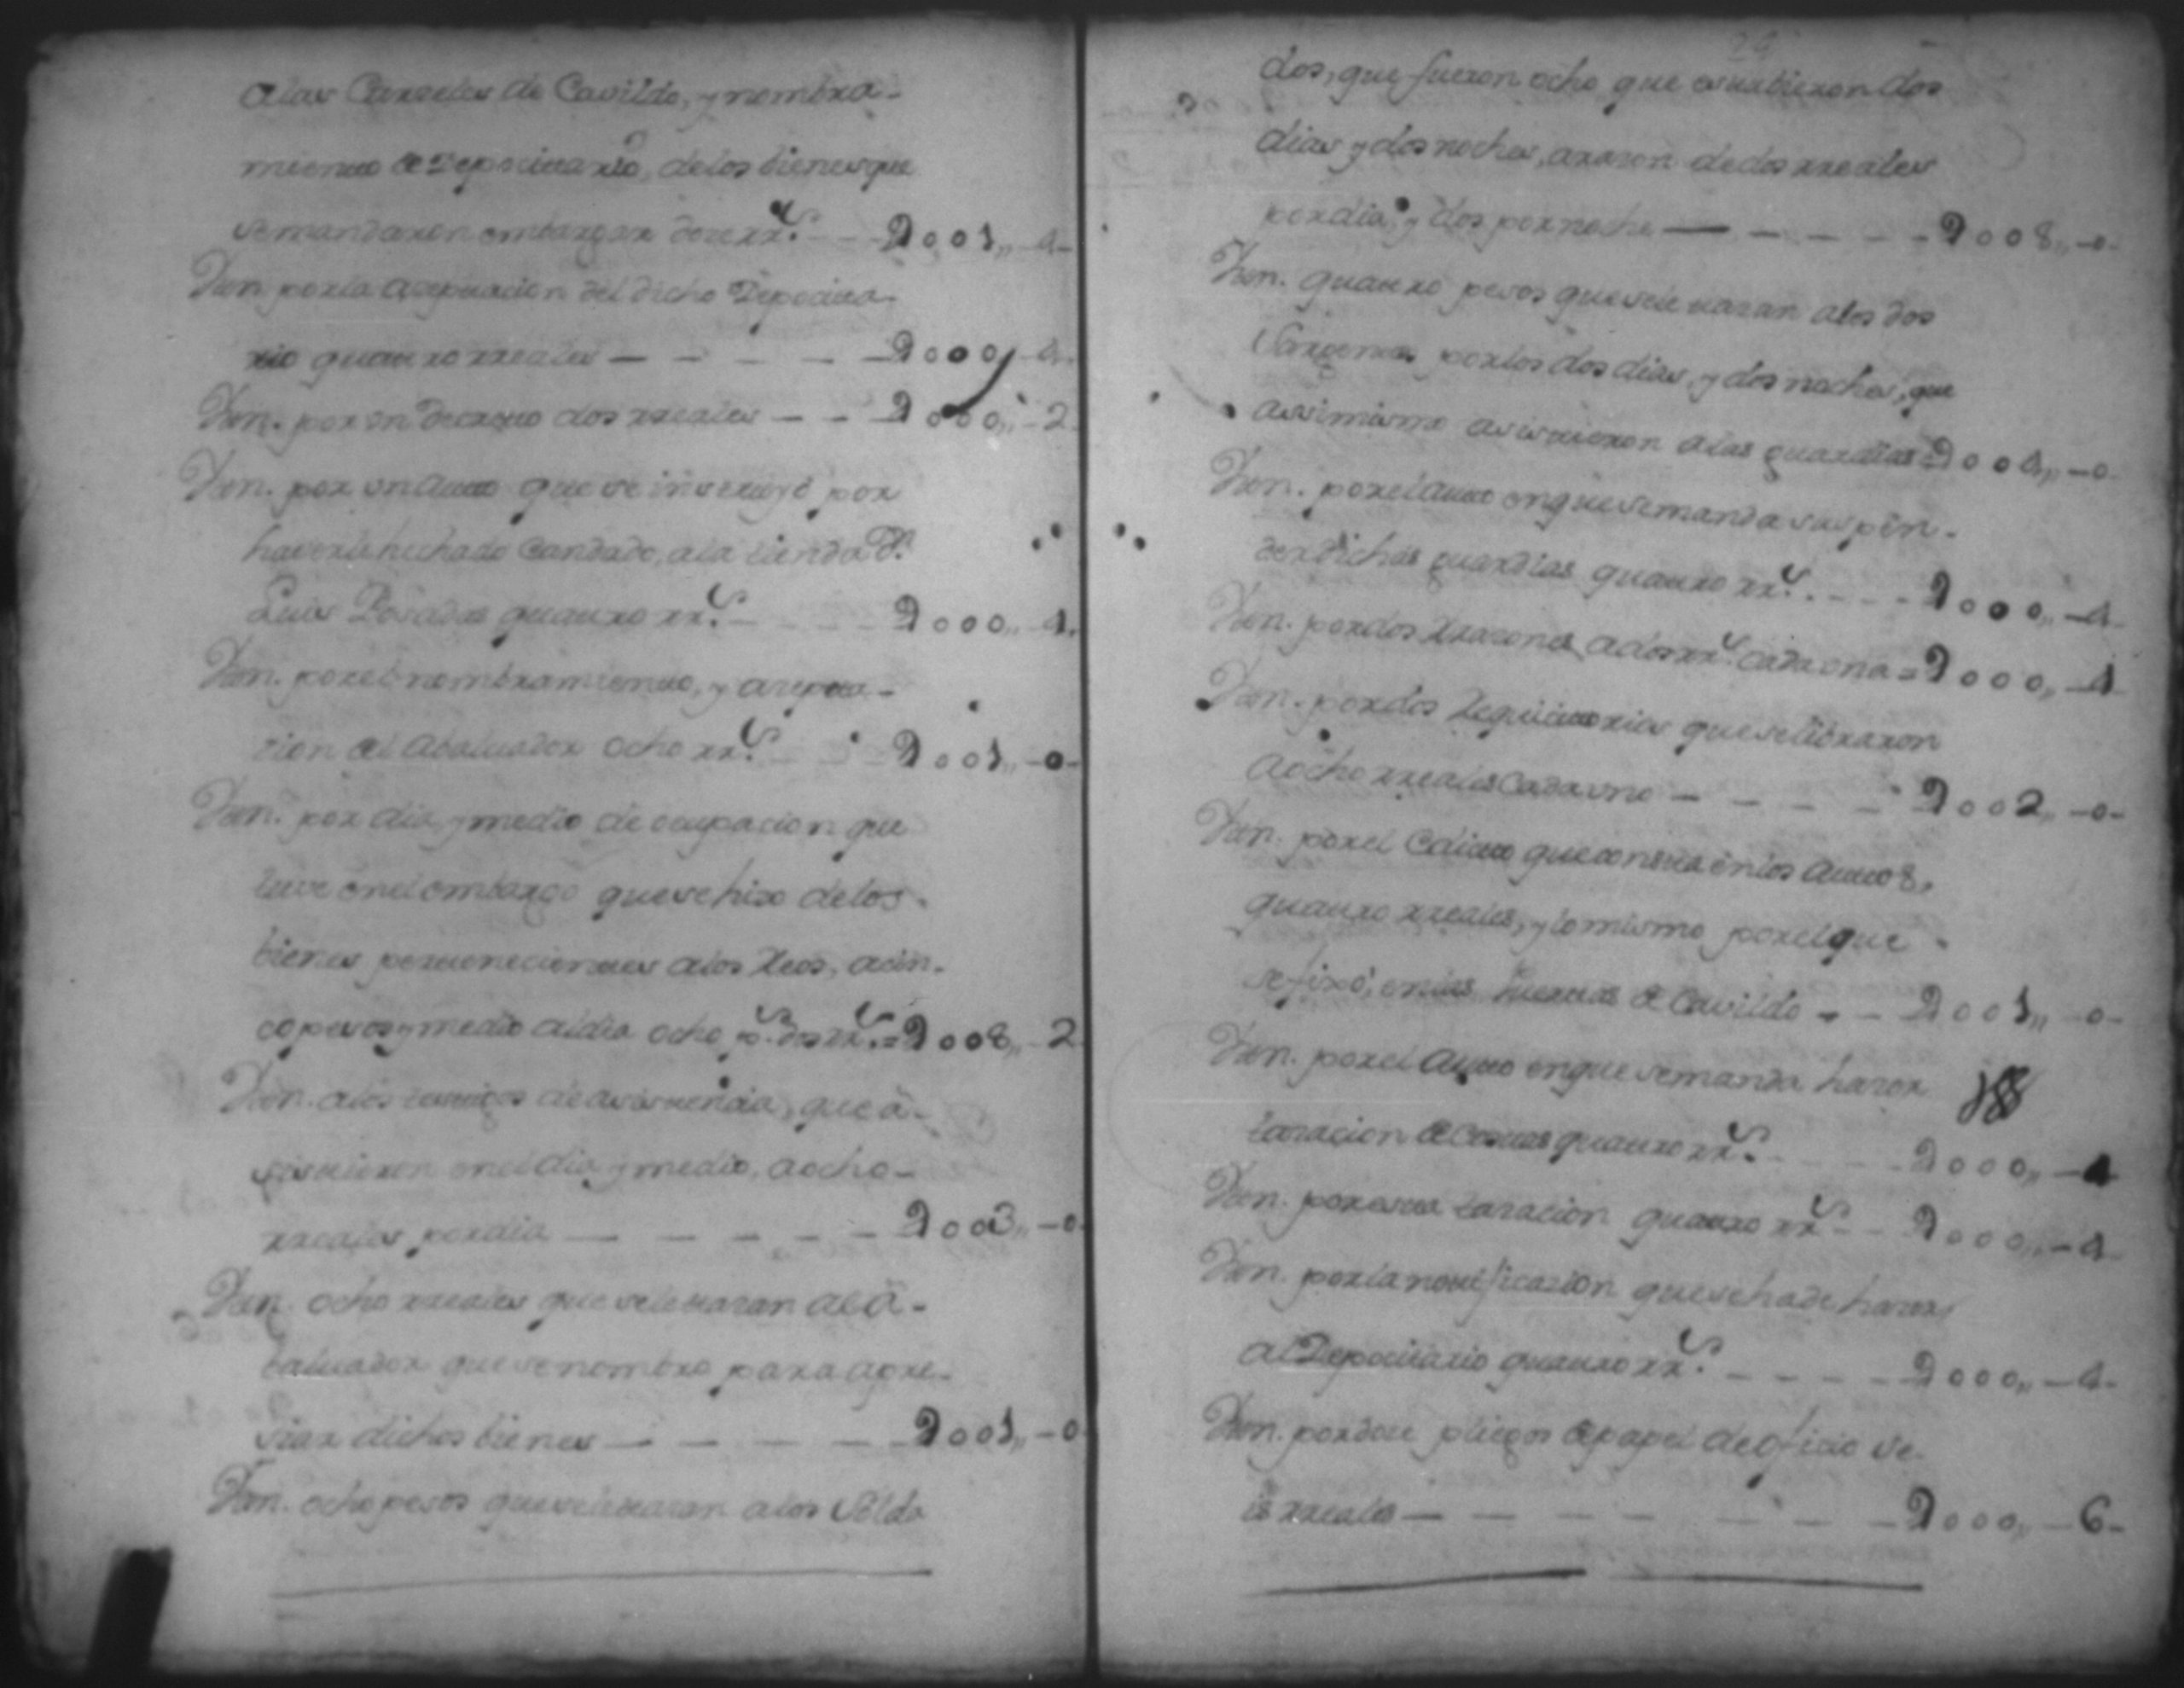 alas Carzeles de Cavildo, y nombra-
miento de Depocitario, delos bienes que
se mandaron embargar doze rr.s — 2001,, -4-
Yten. por la aceptacion del dicho Depocita-
rio quatro rreales — 2000,, -4-
Yten. por un decreto dos rreales — 2000,, -2
Yten. por un auto que se
haverle hechado Candado, ala tienda D.n
Luis Posada quatro rr.s — 2000,, -4.
Yten. por el nombramiento, y acepta-
cion del Abaluador ocho rr.s — 2001,, -0-
Yten. por dia, y medio de ocupacion que
tuve en el embargo que se hizo delos
bienes pertenecientes alos Reos, acin-
co pesos y medio al dia ocho p.s dos rr.s = 2008,, -2
Yten. alos testigos de asistencia, que a-
sistieron en el dia, y medio, a ocho-
rreales por dia — 2003,, -0-
Yten. ocho rreales que se le tazan al A-
baluador que se nombro para apre-
siar dichos bienes — 2001,, -0
Yten. ocho pesos que se le tazan alos Solda
dos, que fueron ocho que estubieron dos
dias y dos noches, arazon de dos rreales
por dia, y dos por noche — 2008,, -0-
Yten. quatro pesos que se le tazan alos dos
Sargentos por los dos dias, y dos noches, que
assimismo asistieron alas guardias = 2004,, -0-
Yten. por el auto en que se manda suspen-
der dichas guardias quatro rr.s — 2000,, -4-
Yten. por dos Razones a dos rr.s cada una = 2000,, -4-
Yten. por dos Requicitorios que se libraron
a ocho rreales cada uno — 2002,, -0-
Yten. por el Edicto que consta en los Autos,
quatro rreales, y lo mismo por el que
se fixó, en las Puertas de Cavildo — 2001,, -0-
Yten. por el Auto en que se manda hazer
tazacion de Costas quatro rr.s — 2000,, -4
Yten. por esta tazacion quatro rr.s — 2000,, -4
Yten. por la notificazion que se ha de hazer
al Depocitario quatro rr.s — 2000,, -4-
Yten. por doze pliegos de papel de oficio se-
is rreales — 2000,, -6-